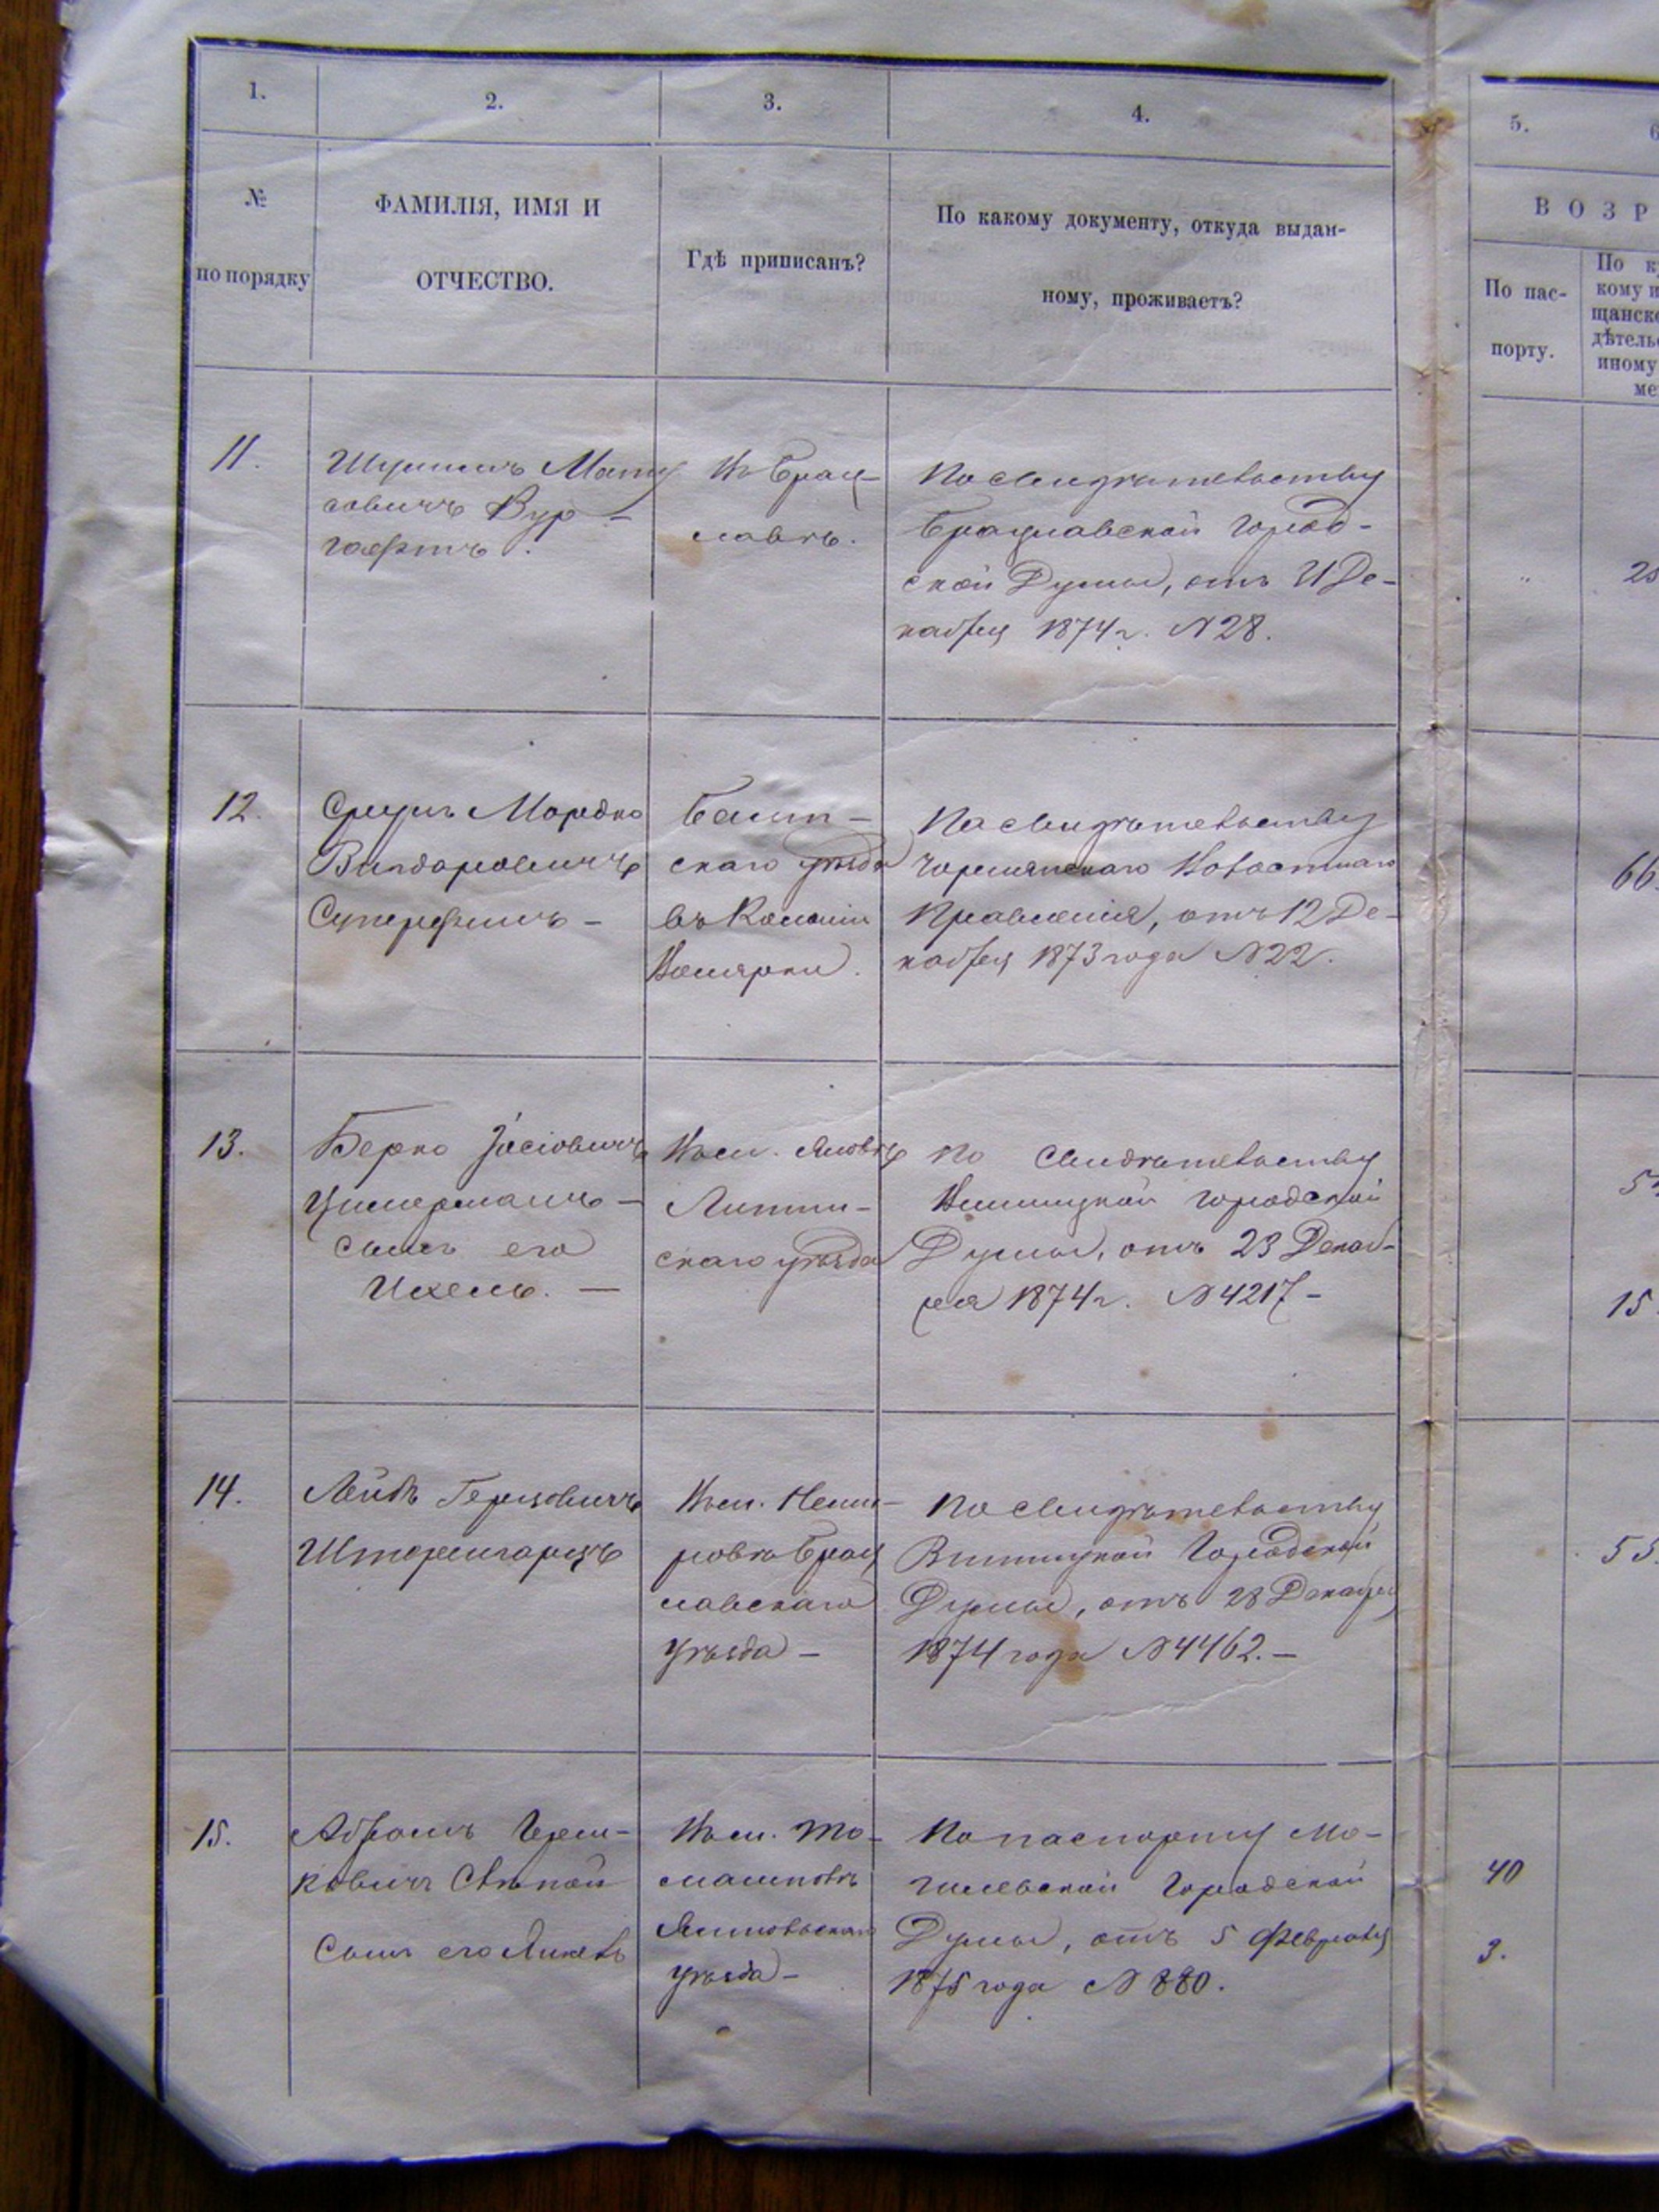 1.
2.
3.
4.
5.
6
№
по порядку
ФАМИЛІЯ, ИМЯ И
ОТЧЕСТВО.
Гдѣ приписанъ?
По какому документу, откуда выдан-
ному, проживаетъ?
ВОЗР
По пас-
порту.
По к
кому и
щанско
дѣтель
иному
ме
11.
Мату
совичъ Вур-
гафтъ.
Въ Брац-
лавѣ.
По свидѣтельству
Брацлавской Город-
ской Думы, отъ De-
кабря 1874 г. № 28.
12.
Срулъ Мордко
Суперфинъ -
Балт-
скаго уѣзда
въ Колоніи
По свидѣтельству
Волостнаго
Правленія, отъ 12 Де-
кабря 1873 года № 22.
66
13.
Берко Іосіовичъ
Цимерманъ -
сынъ его
Ихель. —
Въ м. Яновѣ
Литин-
скаго уѣзда
По свидѣтельству
Винницкой Городской
Думы, отъ 23 Декаб-
ря 1874 г. № 4217 -
5
15
14.
Лейбъ Гершовичъ
Штеренгарцъ
Въ м. Неми-
ровѣ Брац
лавскаго
уѣзда -
По свидѣтельству
Винницкой Городской
Думы, отъ 28 Декабря
1874 года № 4462. -
55
15.
Абрамъ Герш-
ковичъ Слѣпой
Сынъ его Янкель
Въ м. То-
машполѣ
Ямпольскаго
уѣзда -
По паспорту Мо-
гилевской Городской
Думы, отъ 5 Февраля
1875 года № 880.
40
3.